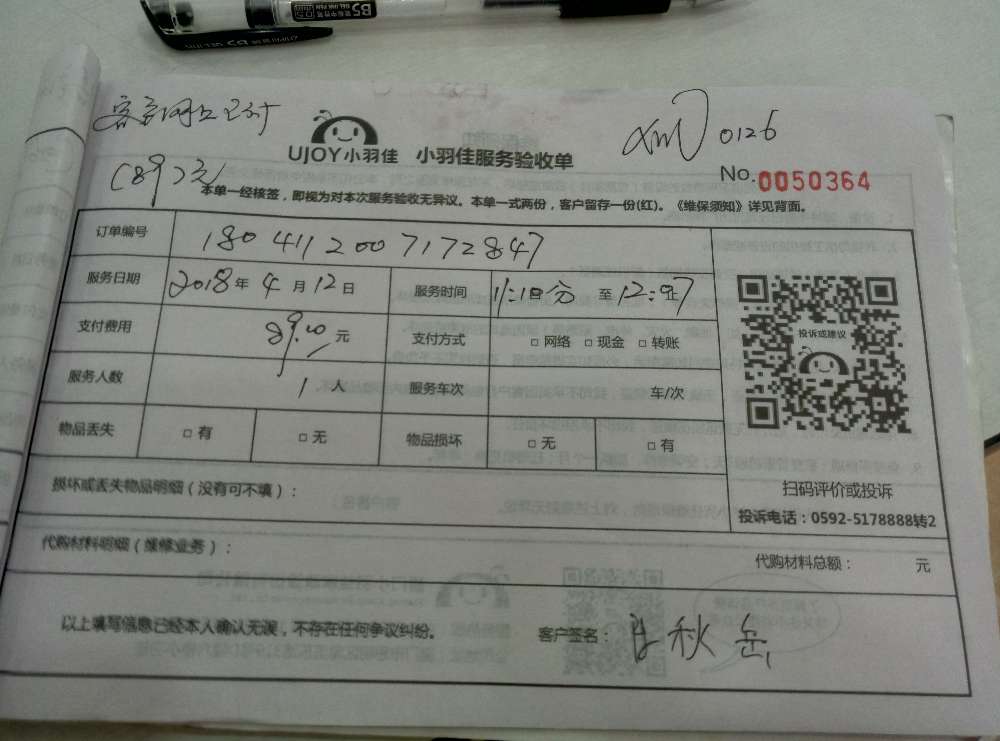 客户网上已付
(89元)
xm 0126
UJOY小羽佳 小羽佳服务验收单
No.0050364
本单一经核签，即视为对本次服务验收无异议。本单一式两份，客户留存一份(红)。《维保须知》详见背面。
订单编号 18041120071772847
服务日期 2018年4月12日 服务时间 11:10分 至 12:07
支付费用 89.00元 支付方式 □网络 □现金 □转账
服务人数 1人 服务车次 车/次
物品丢失 □有 □无 物品损坏 □无 □有
投诉或建议
扫码评价或投诉
投诉电话：0592-5178888转2
损坏或丢失物品明细（没有可不填）：
代购材料明细（维修业务）： 代购材料总额： 元
以上填写信息已经本人确认无误，不存在任何争议纠纷。 客户签名： 秋岳